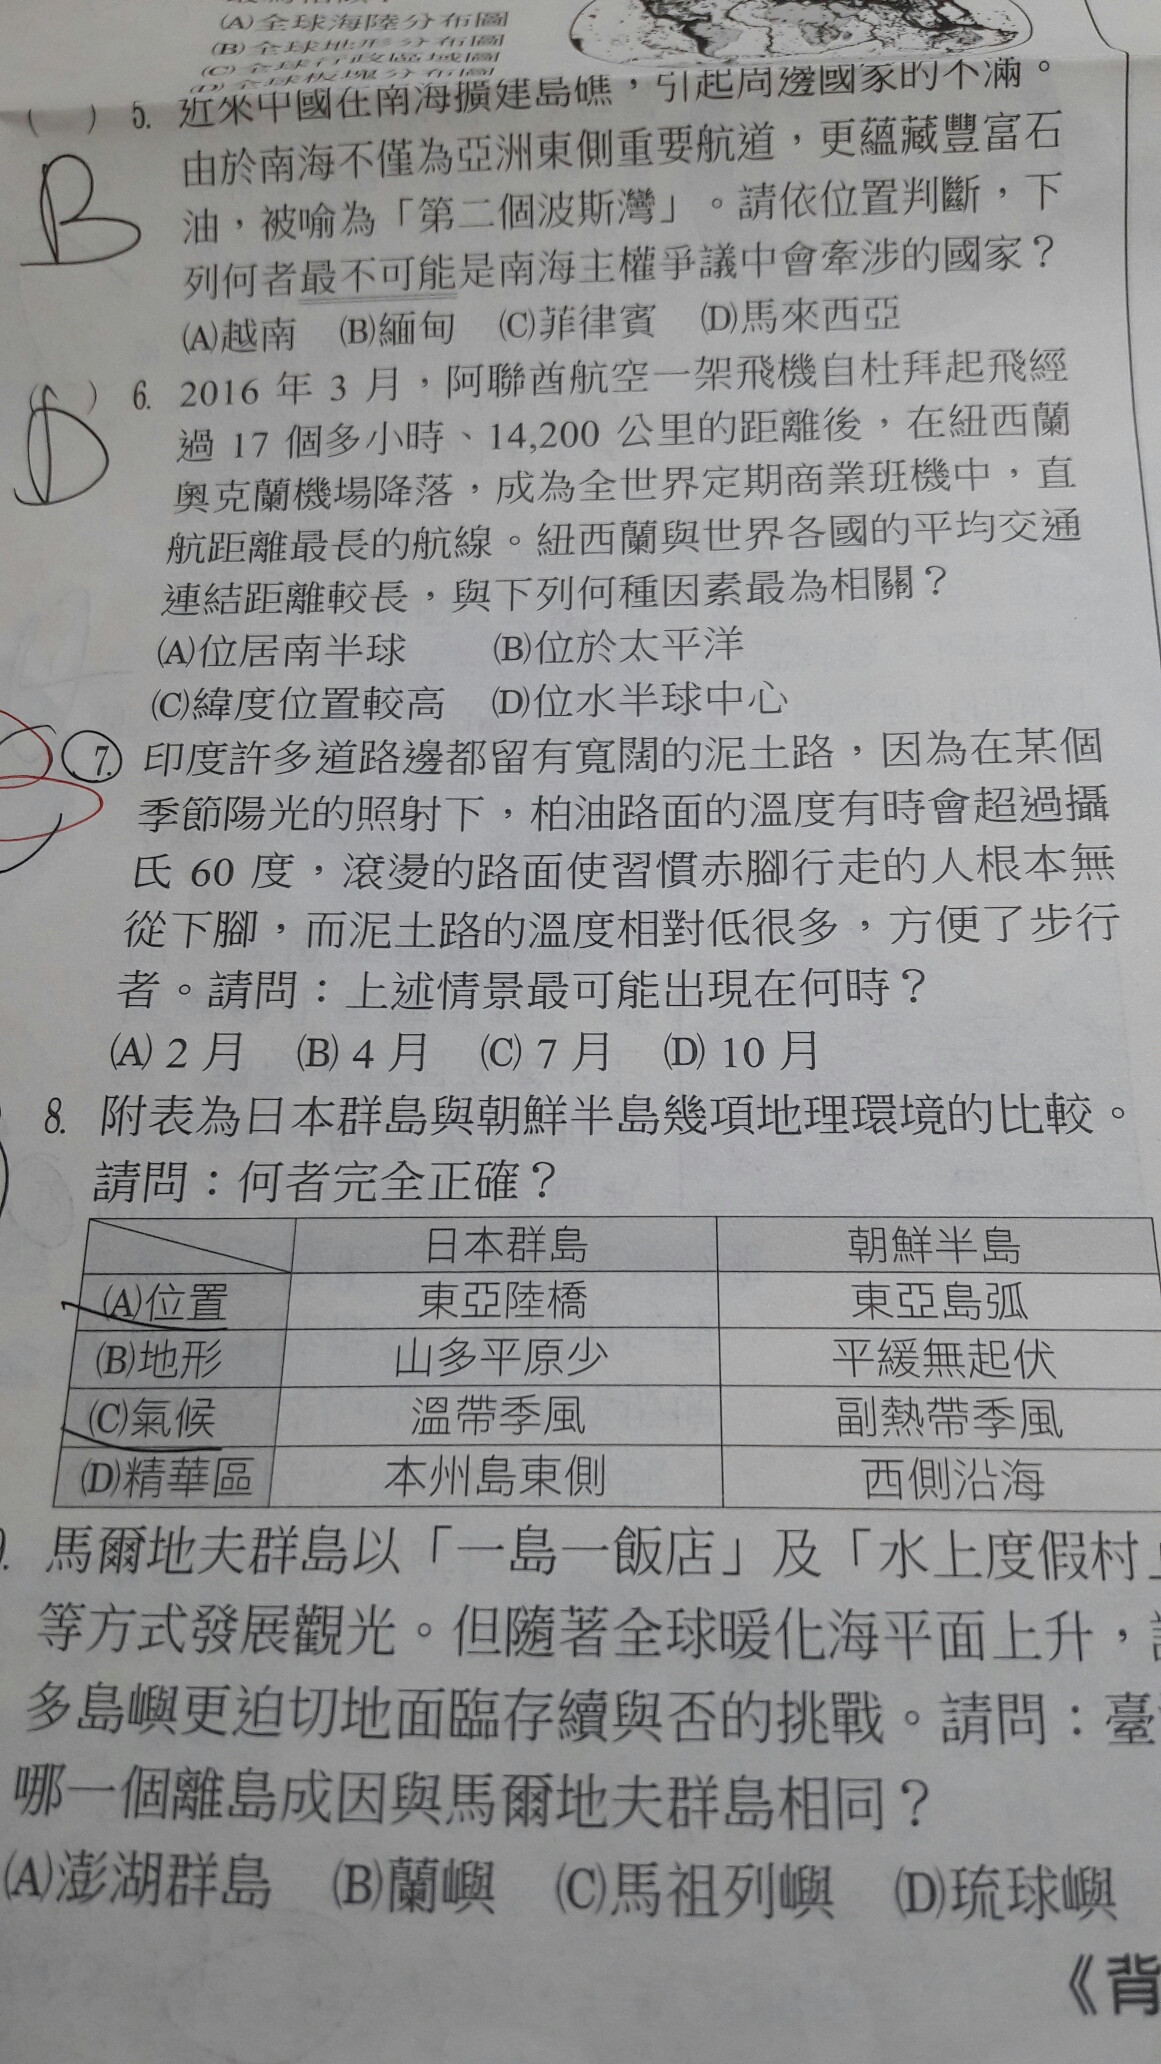 (A)全球海陸分布圖
(B)全球地形分布圖
(C)全球行政區域圖
(D)全球板塊分布圖
( ) 5. 近來中國在南海擴建島礁，引起周邊國家的不滿。
B
由於南海不僅為亞洲東側重要航道，更蘊藏豐富石
油，被喻為「第二個波斯灣」。請依位置判斷，下
列何者最不可能是南海主權爭議中會牽涉的國家？
(A)越南 (B)緬甸 (C)菲律賓 (D)馬來西亞
( ) 6. 2016 年 3 月，阿聯酋航空一架飛機自杜拜起飛經
D
過 17 個多小時、14,200 公里的距離後，在紐西蘭
奧克蘭機場降落，成為全世界定期商業班機中，直
航距離最長的航線。紐西蘭與世界各國的平均交通
連結距離較長，與下列何種因素最為相關？
(A)位居南半球 (B)位於太平洋
(C)緯度位置較高 (D)位水半球中心
7. 印度許多道路邊都留有寬闊的泥土路，因為在某個
季節陽光的照射下，柏油路面的溫度有時會超過攝
氏 60 度，滾燙的路面使習慣赤腳行走的人根本無
從下腳，而泥土路的溫度相對低很多，方便了步行
者。請問：上述情景最可能出現在何時？
(A) 2 月 (B) 4 月 (C) 7 月 (D) 10 月
8. 附表為日本群島與朝鮮半島幾項地理環境的比較。
請問：何者完全正確？
日本群島 朝鮮半島
(A)位置 東亞陸橋 東亞島弧
(B)地形 山多平原少 平緩無起伏
(C)氣候 溫帶季風 副熱帶季風
(D)精華區 本州島東側 西側沿海
馬爾地夫群島以「一島一飯店」及「水上度假村」
等方式發展觀光。但隨著全球暖化海平面上升，
多島嶼更迫切地面臨存續與否的挑戰。請問：臺
哪一個離島成因與馬爾地夫群島相同？
(A)澎湖群島 (B)蘭嶼 (C)馬祖列嶼 (D)琉球嶼
《背